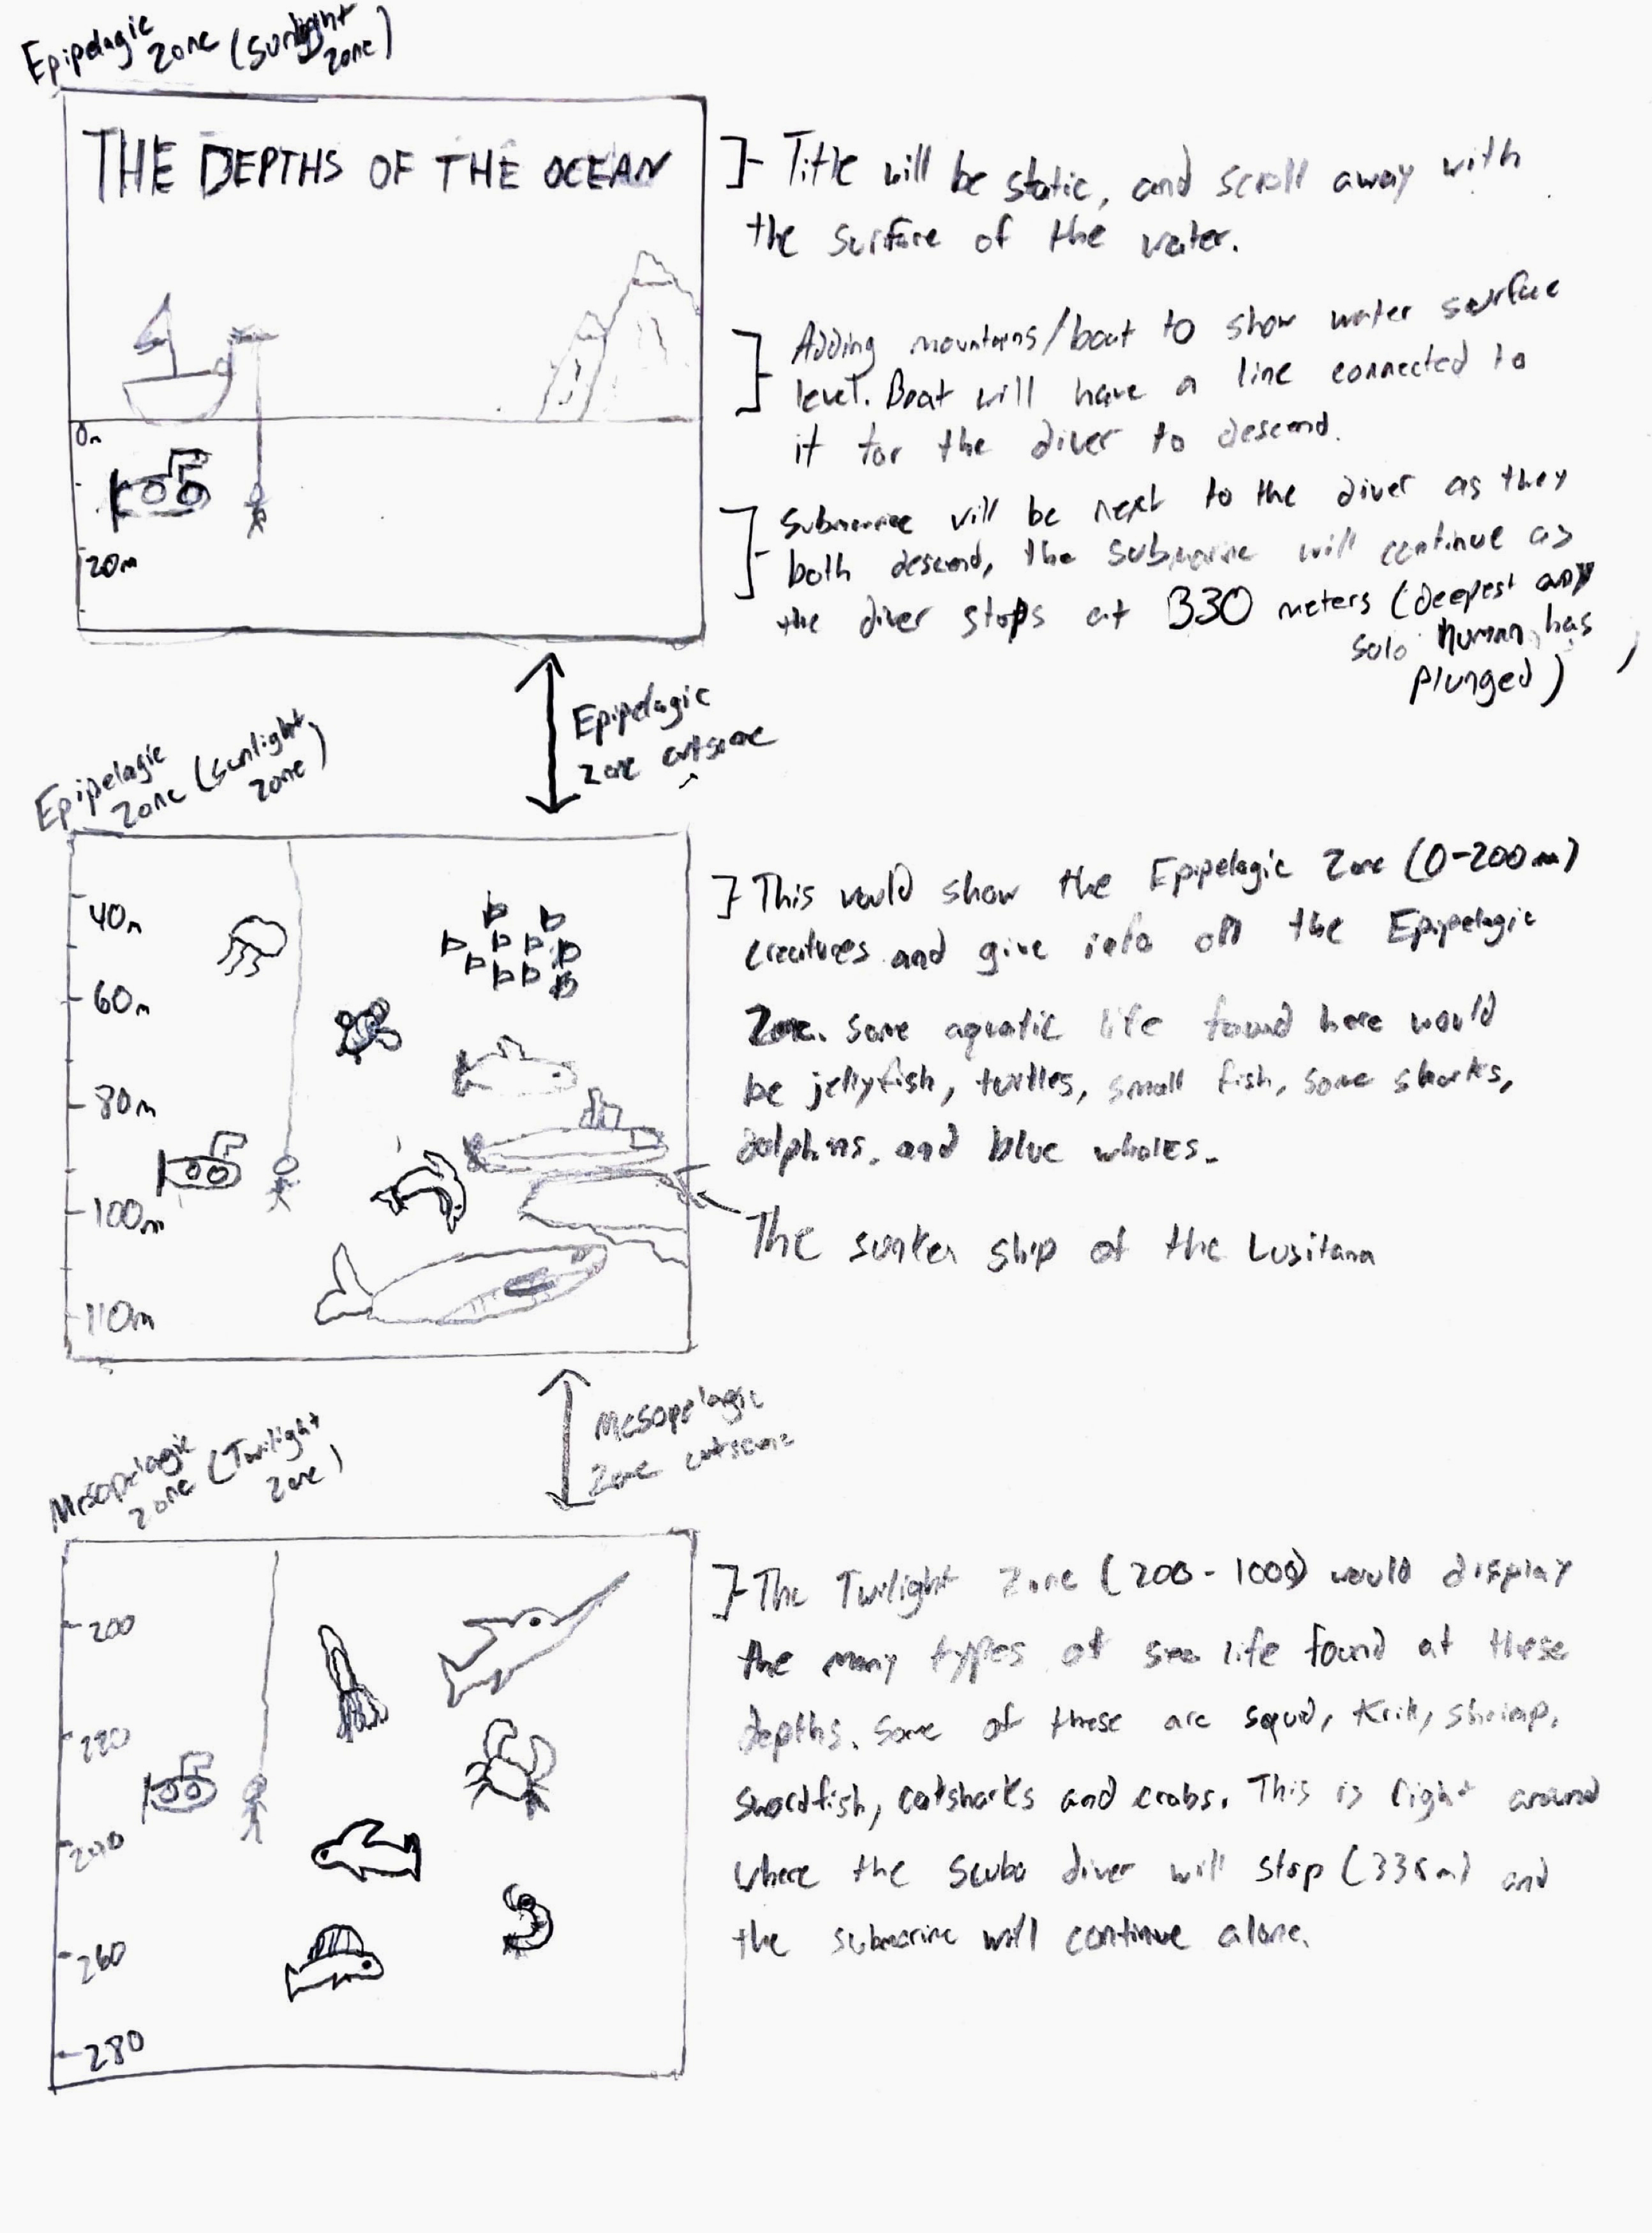 Epipelagic
Zone (Sunlight
Zone)
THE DEPTHS OF THE OCEAN
0m
20m
Title will be static, and scroll away with
the surface of the water.
Adding mountains/boat to show water surface
level. Boat will have a line connected to
it for the diver to descend.
Submarine will be next to the diver as they
both descend, the submarine will continue as
the diver stops at 330 meters (deepest any
solo human has
plunged)
Epipelagic
Zone cutscene
Epipelagic
Zone (Sunlight
Zone)
40m
60m
80m
100m
110m
This would show the Epipelagic Zone (0-200m)
creatures and give info on the Epipelagic
Zone. Some aquatic life found here would
be jellyfish, turtles, small fish, some sharks,
dolphins, and blue whales.
The sunken ship of the Lusitana
Mesopelagic
Zone cutscene
Mesopelagic
Zone (Twilight
Zone)
200
220
240
260
280
The Twilight Zone (200-1000) would display
the many types of sea life found at these
depths. Some of these are squid, Krill, shrimp,
swordfish, catsharks and crabs. This is right around
where the scuba diver will stop (335m) and
the submarine will continue alone.